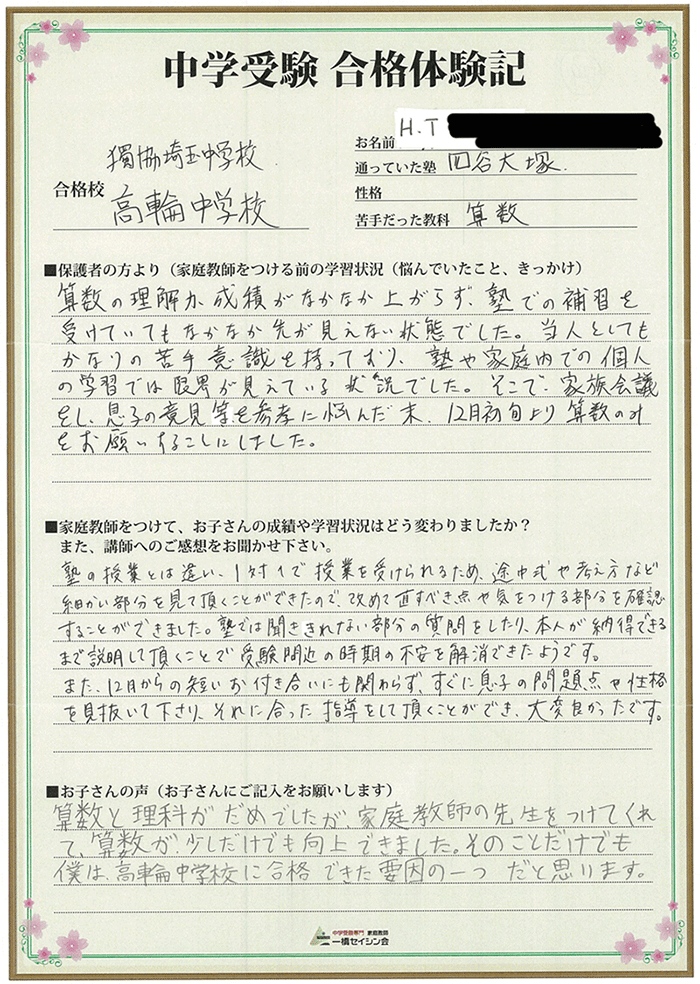 中学受験 合格体験記
合格校
獨協埼玉中学校
高輪中学校
お名前 H.T
通っていた塾 四谷大塚
性格
苦手だった教科 算数
■保護者の方より（家庭教師をつける前の学習状況（悩んでいたこと、きっかけ）
算数の理解力、成績がなかなか上がらず、塾での補習を
受けていてもなかなか先が見えない状態でした。当人としても
かなりの苦手意識を持っており、塾や家庭内での個人
の学習では限界が見えている状況でした。そこで、家族会議
をし、息子の意見等を参考に悩んだ末、12月初旬より算数のみ
をお願いすることにしました。
■家庭教師をつけて、お子さんの成績や学習状況はどう変わりましたか？
また、講師へのご感想をお聞かせ下さい。
塾の授業とは違い、1対1で授業を受けられるため、途中式や考え方など
細かい部分を見て頂くことができたので、改めて直すべき点や気をつける部分を確認
することができました。塾では聞ききれない部分の質問をしたり、本人が納得できる
まで説明して頂くことで受験間近の時期の不安を解消できたようです。
また、12月からの短いお付き合いにも関わらず、すぐに息子の問題点や性格
を見抜いて下さり、それに合った指導をして頂くことができ、大変良かったです。
■お子さんの声（お子さんにご記入をお願いします）
算数と理科がだめでしたが家庭教師の先生をつけてくれ
て、算数が、少しだけでも向上できました。そのことだけでも
僕は、高輪中学校に合格できた要因の一つだと思ります。
中学受験専門 家庭教師
一橋セイシン会